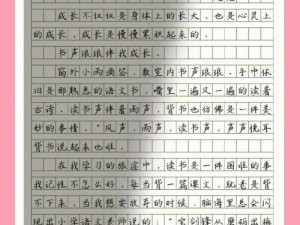 成长不仅仅是身体上的长大，也是心灵上
的成长，成长是慢慢累积起来的。
书声琅琅伴我成长。
窗外小雨滴答，教室内书声琅琅，手中依
旧是那熟悉的语文书，嘴里一遍又一遍的读着
古诗，读书声伴着雨声，背书也仿佛是一件是
妙的事情，“风声，雨声，读书声，声声悦耳
背书说起来也难。
在我学习的旅途中，读书是一件困难的事
我记性不怎么好，每当背一篇课文，就丢三
不下来，当我想要放弃的时候，脑海里总会闪
现出小学语文老师说的，“宝剑锋从磨砺出梅